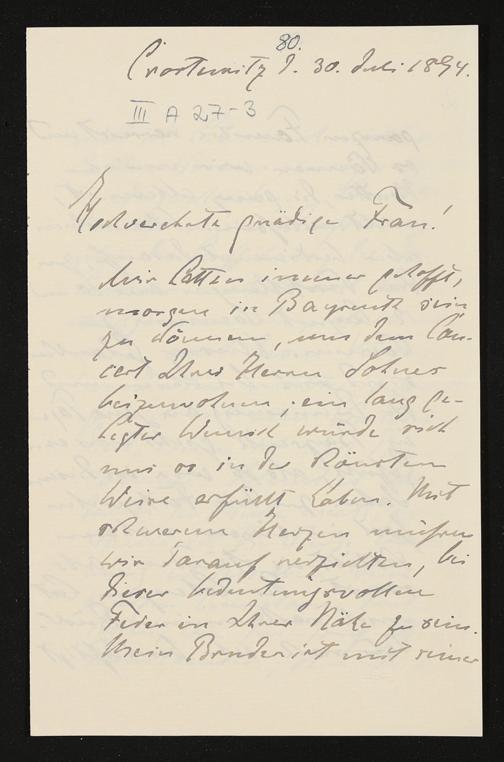 80.
Crostewitz d. 30. Juli 1894.
III A 27-3
Hochverehrte gnädige Frau!
Wir hatten immer gehofft,
morgen in Bayreuth sein
zu können, um dem Con-
cert Ihres Herrn Sohnes
beizuwohnen; ein lang ge-
hegter Wunsch würde sich
uns so in der schönsten
Weise erfüllt haben. Mit
schwerem Herzen müssen
wir darauf verzichten, bei
dieser bedeutungsvollen
Feier in Ihrer Nähe zu sein.
Mein Bruder ist mit seiner